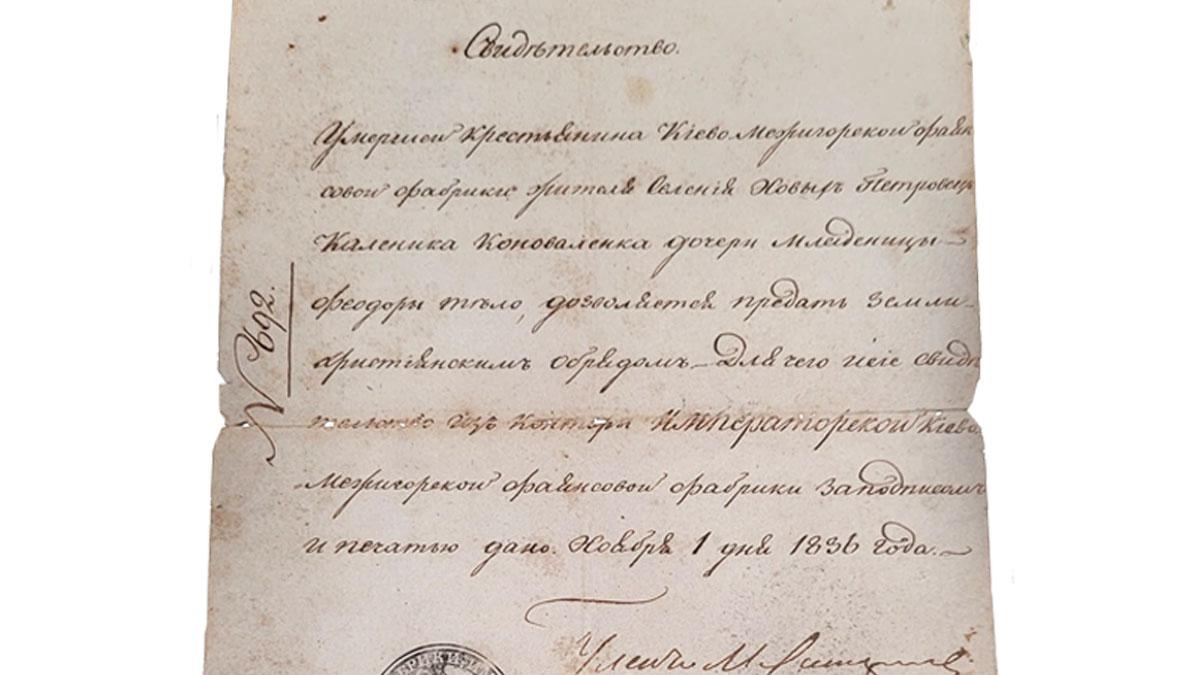 Свидѣтельство.
Умершей крестьянина Кіево Межигорской фаян
совой фабрики, жителя Селенія Новыхъ Петровецъ
Каленика Коноваленка дочери младеницы
Феодоры тѣло, дозволяется предать земли
христіянскимъ обрядомъ. Для чего и сіе свидѣ
тельство изъ конторы Императорской Кіево
Межигорской фаянсовой фабрики за подписомъ
и печатью дано. Ноября 1 дня 1836 года.
№ 692.
Членъ